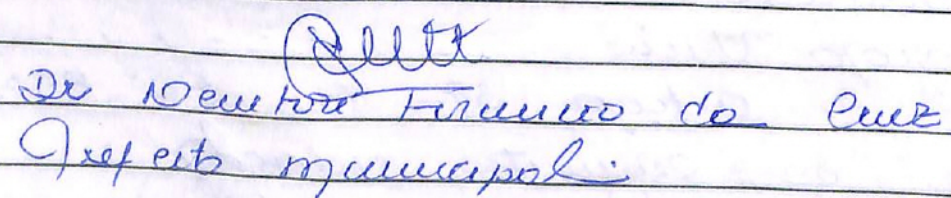 Dr Newton Firmino da Cruz
Prefeito municipal.